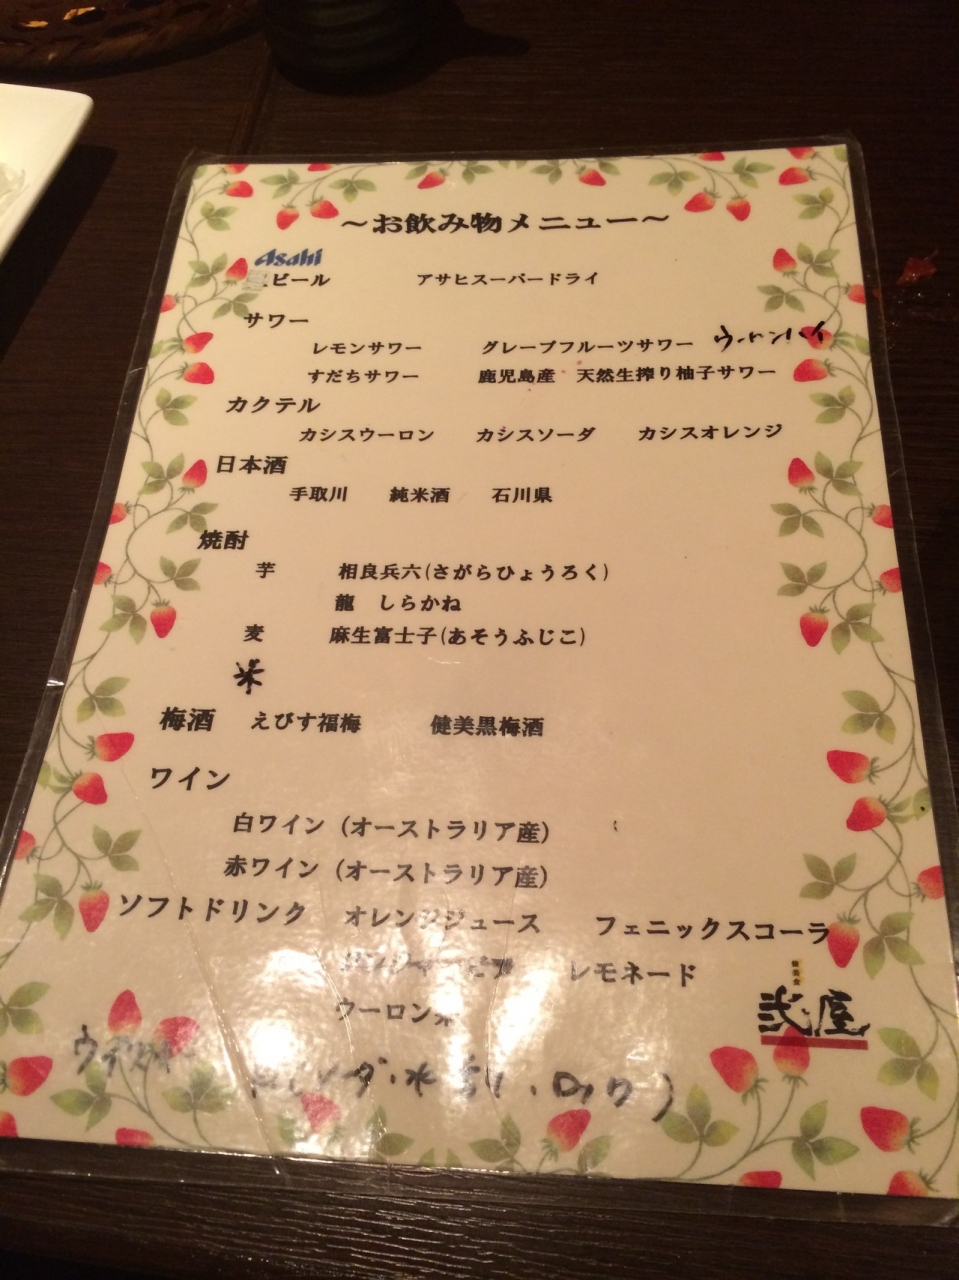 ～お飲み物メニュー～
Asahi
ビール　アサヒスーパードライ
サワー
レモンサワー　グレープフルーツサワー　ウーロンハイ
すだちサワー　鹿児島産　天然生搾り柚子サワー
カクテル
カシスウーロン　カシスソーダ　カシスオレンジ
日本酒
手取川　純米酒　石川県
焼酎
芋　相良兵六(さがらひょうろく)
龍　しらかね
麦　麻生富士子(あそうふじこ)
米
梅酒　えびす福梅　健美黒梅酒
ワイン
白ワイン（オーストラリア産）
赤ワイン（オーストラリア産）
ソフトドリンク　オレンジジュース　フェニックスコーラ
レモネード
ウーロン茶
弐屋
ソーダ・水割・ロック）